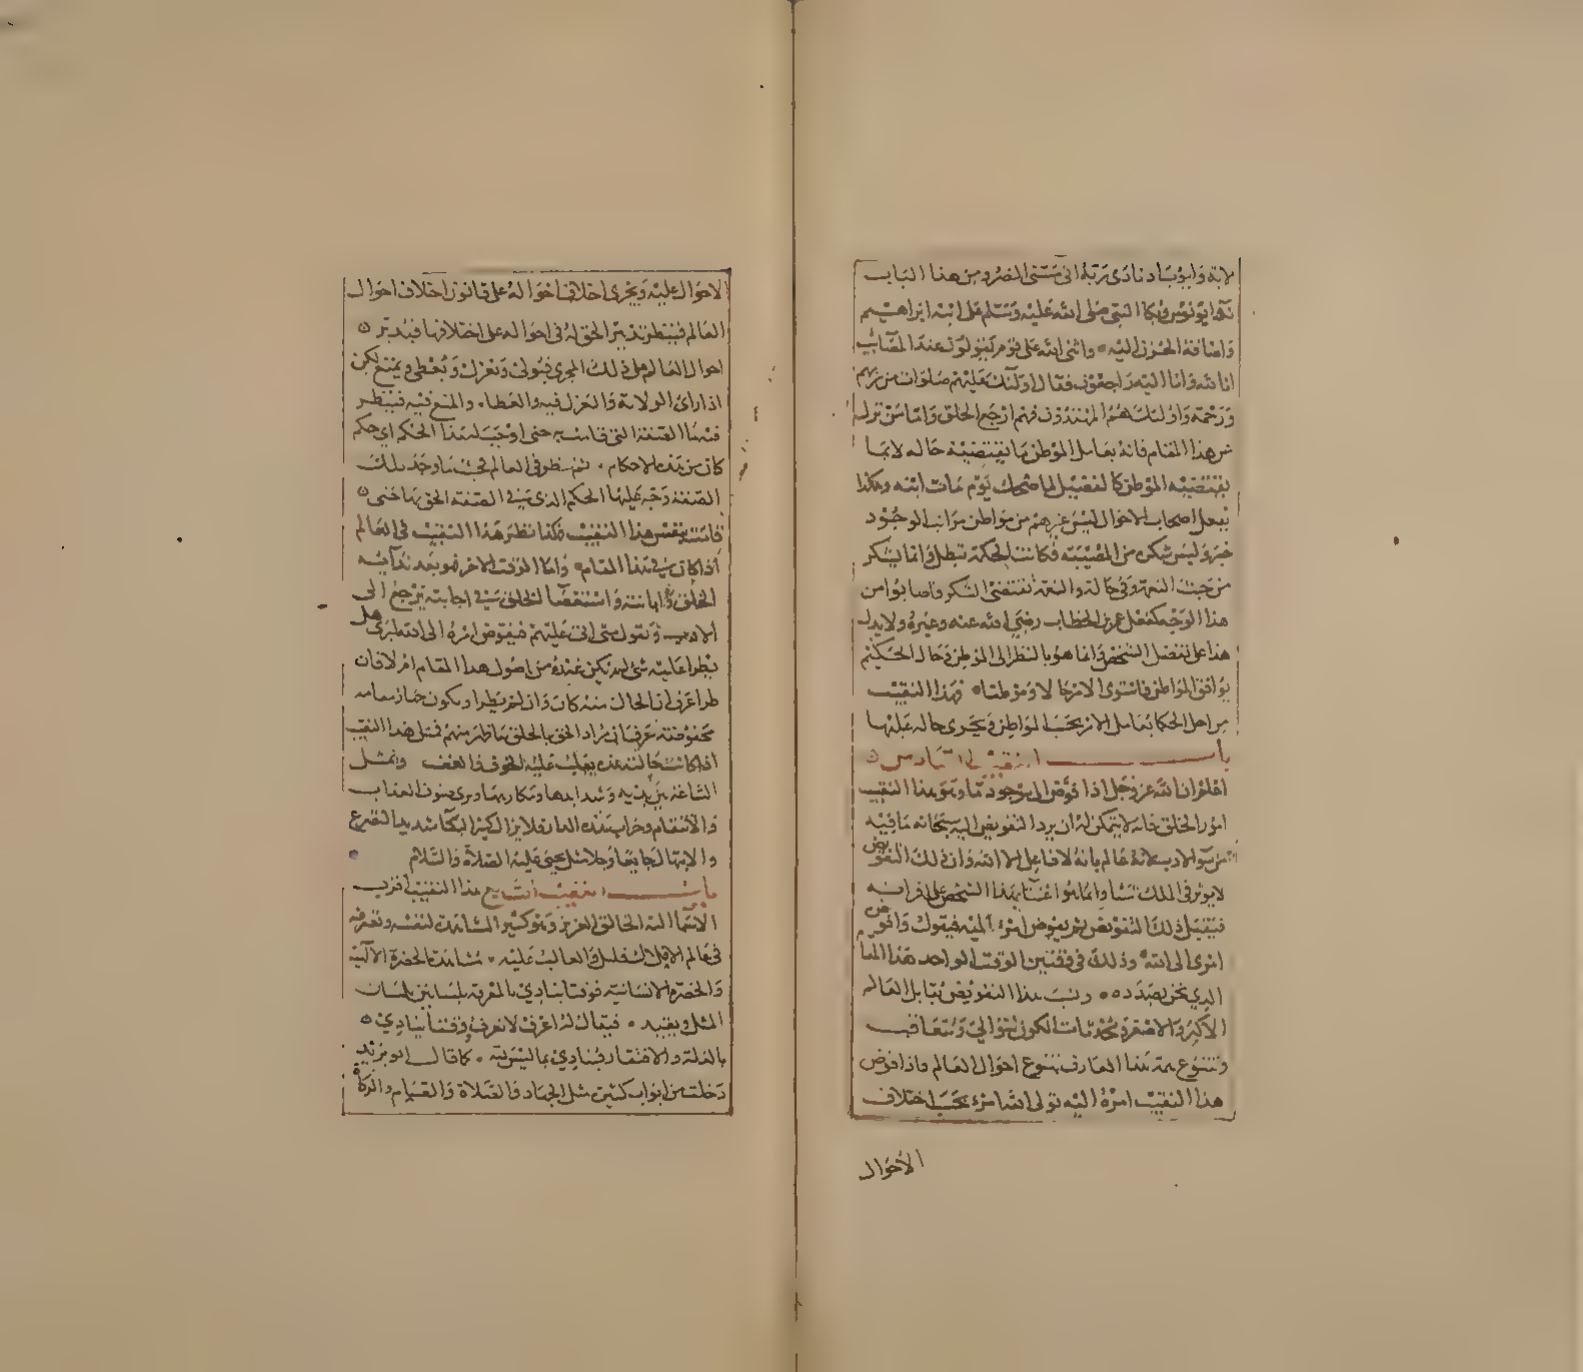 لانه وايوب اذ نادى ربه انى مسنى الضر ومن هذا الباب
صلى الله عليه وسلم على ابنه ابراهيم
واضافة الحزن اليه واثنى الله على قوم يقولون عند المصائب
انا لله وانا اليه راجعون فقال اولئك عليهم صلوات من ربهم
ورحمة واولئك هم المهتدون فهم ارجع الخلق واما من نزل
عن هذا المقام فانه يعامل الموطن بما يقتضيه حاله لا بما
يقتضيه الموطن كالفضيل لما ضحك يوم مات ابنه وهكذا
يفعل اصحاب الاحوال ليس غيرهم من مواطن مراتب الوجود
خبر وليس شكر من المصيبة فكانت الحكمة تبطل وانما يشكر
من حيث النعمة وفى حالة والنعمة تقتضى الشكر فاصابوا من
هذا الوجه كفعل عمر بن الخطاب رضى الله عنه وغيره ولا يدل
هذا على تفضل الشخص وانما هو بالنظر الى الموطن وحال الحكيم
يوافق المواطن فاستوى الامر حالا وموطنا فهذا النقيب
من اهل الحكمة يعامل الامر بحسب المواطن ويجرى حاله عليها
باب النقيب السادس
اعلم ان الله عز وجل اذا فوض الى موجود ما وهو هذا النقيب
امور الخلق فانه لا يتمكن له ان يرد التفويض اليه سبحانه ما فيه
من سوء الادب لانه عالم بانه لا فاعل الا الله وان ذلك التفويض
لا يوثر فى الملك شيا وانما هو اعتنا بهذا الشخص على اقرانه
فيقبل ذلك التفويض ثم يفوض امره اليه فيقول وافوض
امرى الى الله وذلك فى وقتين الوقت الواحد هذا المقا
الذى نحن بصدده ونسب هذا التفويض يقابل العالم
الاكبر والاصغر ومحدثات الكون تتوالى وتتعاقب
وتتنوع همة هذا العارف بتنوع احوال العالم واذا فوض
هذا النقيب امره اليه تولى الله امره بحسب اختلاف
الاحوال
الاحوال عليه ويجرى اختلاف احواله على قانون اختلاف احوال
العالم فينظر تدبير الحق له فى احواله على اختلافها فيدبر
احوال العالم على ذلك المجرى فيولى ويعزل ويعطى ويمنع لكن
اذا راى الولاية والعزل فيه والعطا والمنع فيه فينظر
فيها الصفة التى قامت به حتى اوجبت له هذا الحكم اى حكم
كان من هذه الاحكام ثم ينظر فى العالم فحيث ما وجد تلك
الصفة وجه عليها الحكم الذى فى الصفة الحق بها حتى
هذا النقيب هكذا نظر هذا النقيب فى العالم
اذا كان فى هذا المقام واما الوقت الاخر فهو بعد ندايه
الخلق وابانته واستعصا الخلق فى اجابته يرجع الى
الادب ويقول حتى اتى عليهم فيفوض امره الى الله ليرى هل
يطرا عليه شى لم يكن عنده من اصول هذا المقام ام لا فان
طرا عرف ان الحال منه كانت وان لم يطرا ويكون حاز مقامه
محفوظة عرف انى مراد الحق بالخلق ما ظهر منهم فمثل هذا النقيب
اذا كانت حالته هذه يغلب عليه الخوف والعنف وتمثل
الساعة بين يديه وشدايدها ومكارهها ويرى صنوف العذاب
والانتقام وخراب هذه الدار فلا يزال كثير البكا شديد التضرع
والابتهال جايعا وجلا مثل يحيى عليه الصلاة والسلام
باب النقيب السابع هذا النقيب اقرب
الانتما الى الخالق العزيز وهو كثير المشاهدة لنفسه وتعرفه
فى عالم والغالب عليه مشاهدة الحضرة الالهية
والحضرة الانسانية فوقتا ينادى بالمعرفة بلسانين بلسان
المثل ويعتبد فيقال له اعرف لا تعرف ووقتا ينادى
بالذلة والافتقار فينادى بما ليس به كما قال ابو يزيد
دخلت من ابواب كثيرة مثل الجهاد والصلاة والصيام والزكاة